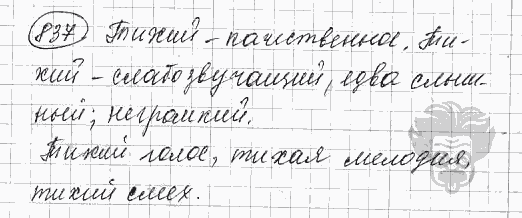 837 Тихий – качественное. Ти-
хий – слабозвучащий, едва слыш-
ный; негромкий.
Тихий голос, тихая мелодия,
тихий смех.